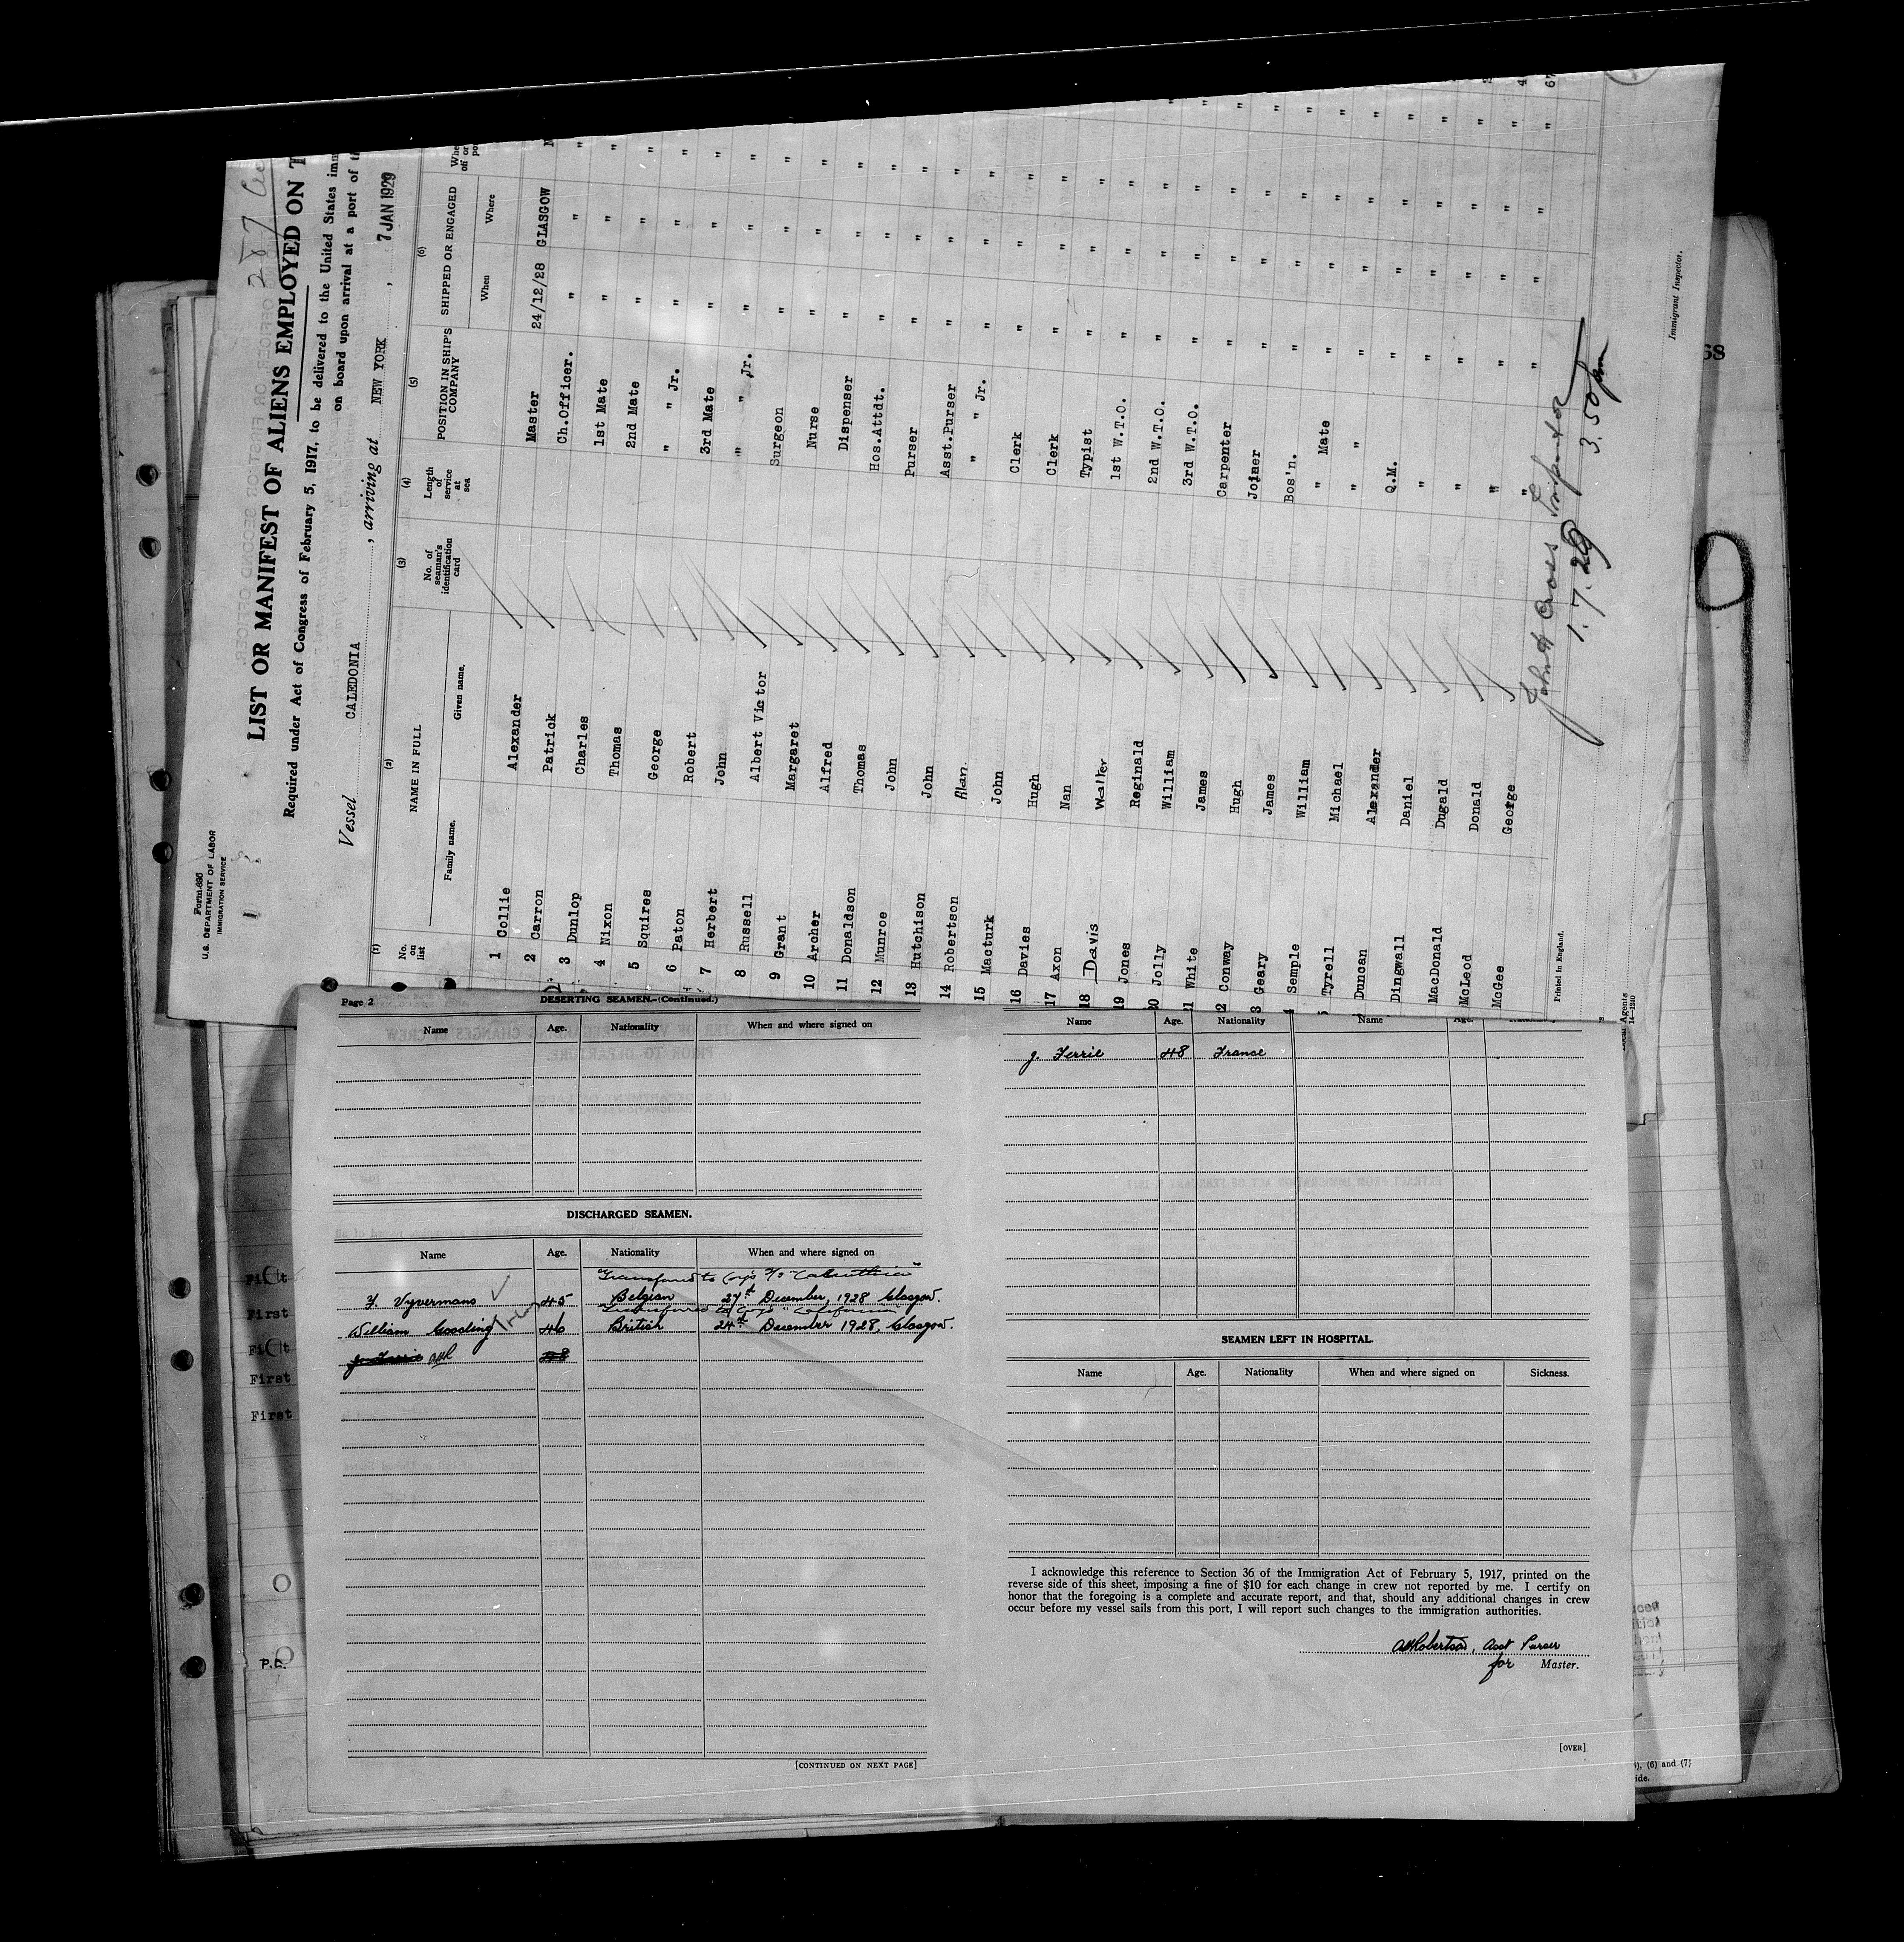 Form 680
U.S. DEPARTMENT OF LABOR
IMMIGRATION SERVICE
LIST OR MANIFEST OF ALIENS EMPLOYED ON T
Required under Act of Congress of February 5, 1917, to be delivered to the United States imm
on board upon arrival at a port of t
Vessel CALEDONIA, arriving at NEW YORK, 7 JAN 1929
(1) (2) (3) (4) (5) (6)
No. on list NAME IN FULL No. of seaman's identification card Length of service at sea POSITION IN SHIP'S COMPANY SHIPPED OR ENGAGED
Family name. Given name. When Where
1 Collie Alexander Master 24/12/28 GLASGOW
2 Carron Patrick Ch.Officer. " " "
3 Dunlop Charles 1st Mate " " "
4 Nixon Thomas 2nd Mate " " "
5 Squires George " " Jr. " " "
6 Paton Robert 3rd Mate " " "
7 Herbert John " " Jr. " " "
8 Russell Albert Victor Surgeon " " "
9 Grant Margaret Nurse " " "
10 Archer Alfred Dispenser " " "
11 Donaldson Thomas Hos.Attdt. " " "
12 Munroe John Purser " " "
13 Hutchison John Asst.Purser " " "
14 Robertson Alan " " Jr. " " "
15 Macturk John Clerk " " "
16 Davies Hugh Clerk " " "
17 Axon Nan Typist " " "
18 Davis Walter 1st W.T.O. " " "
19 Jones Reginald 2nd W.T.O. " " "
20 Jolly William 3rd W.T.O. " " "
21 White James Carpenter " " "
22 Conway Hugh Joiner " " "
3 Geary James Bos'n. " " "
4 Semple William " Mate " " "
5 Tyrell Michael " " " " "
Duncan Alexander Q.M. " " "
Dingwall Daniel " " " "
MacDonald Dugald " " " "
McLeod Donald " " " "
McGee George " " " "
John H Cross Inspector
1.7.29 3.50 pm
Printed in England.
Immigrant Inspector.
Page 2
DESERTING SEAMEN.—(Continued.)
Name Age. Nationality When and where signed on
DISCHARGED SEAMEN.
Name Age. Nationality When and where signed on
Transferred to Cargo
F. Vyvermans 45 Belgian 27th December, 1928 Glasgow.
Transferred to Cargo "California"
William Gooding 46 British 24th December 1928, Glasgow.
48
[CONTINUED ON NEXT PAGE]
Name Age. Nationality Name Age.
J. Ferrie 48 France
SEAMEN LEFT IN HOSPITAL.
Name Age. Nationality When and where signed on Sickness.
I acknowledge this reference to Section 36 of the Immigration Act of February 5, 1917, printed on the
reverse side of this sheet, imposing a fine of $10 for each change in crew not reported by me. I certify on
honor that the foregoing is a complete and accurate report, and that, should any additional changes in crew
occur before my vessel sails from this port, I will report such changes to the immigration authorities.
AHRobertson, Asst Purser
for Master.
[OVER]
First
First
First
First
First
P.C.
68
9
(6) and (7)
ide.